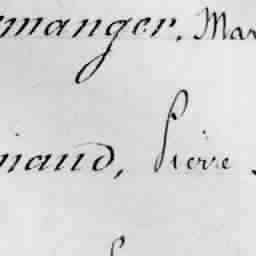 manger. Mar
naud, Pierre